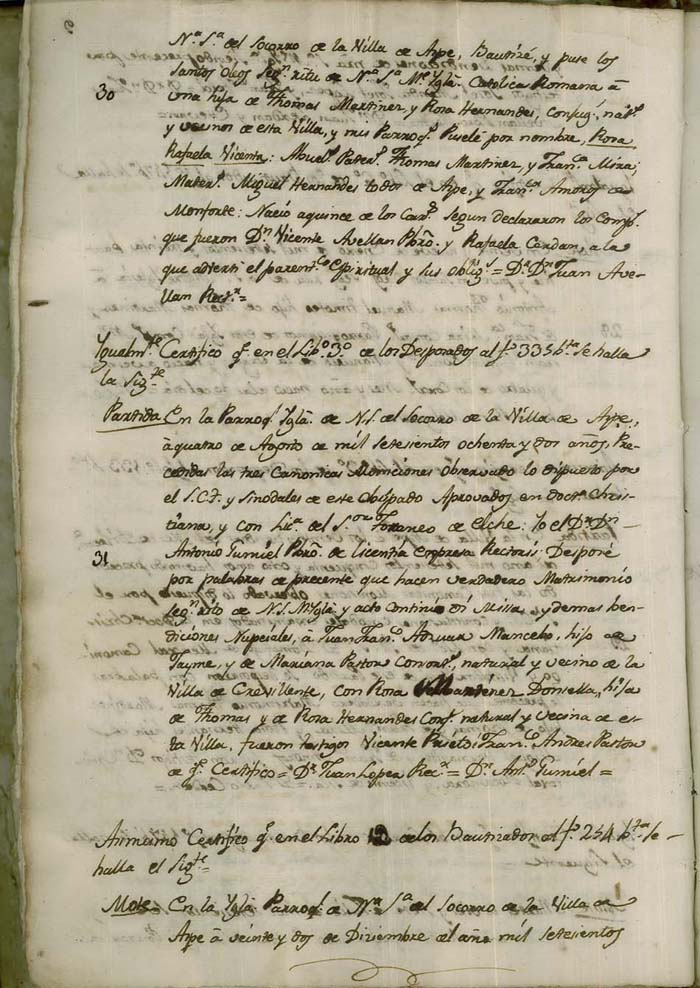 Nª Sª del Socorro de la Villa de Aspe, Bautizé, y puse los
Santos Oleos seg.n ritu de Nª Sª Me Yglª Catolica Romana à
30 una hija de Thomas Martinez y Rosa Hernandes, conjug.s nat.s
y vecinos de esta Villa, y mis Parroq.s Puselé por nombre, Rosa
Rafaela Vicenta: Abuel.s Pater.s Thomas Martinez, y Fran.ca Mira;
Mater.s Miguel Hernandes todos de Aspe, y Fran.ca Amoros de
Monforte: Nació a quince de los Corr.s segun declararon los Comp.s
que fueron D.n Vicente Avellan Pbrõ. y Rafaela Cerdan, a la
que adverti el parent.co Espiritual y sus oblig.s = D.r D.n Juan Ave-
llan Rect.r =
Ygualm.te Certifico q.e en el Lib.o 3.o de los Desposados al f.o 335 b.ta se halla
la Sig.te
Partida En la Parroq.l Yglª de N.S. del Socorro de la Villa de Aspe,
à quatro de Agosto de mil setesientos ochenta y dos años, Pre-
cedidas las tres Canonicas Moniciones observado lo dispuesto por
el S.C.T. y Sinodales de este Obispado Aprovados en doct.na Chris-
tiana, y con Lic.a del S.or Foraneo de Elche: Yo el D.r D.n
31 Antonio Gumiel Pbrõ. de Licentia expresa Rectoris: Desposé
por palabras de precente que hacen verdadero Matrimonio
seg.n rito de N.S. M. Yglª y acto continuo di Missa, y demas ben-
diciones Nupciales, à Juan Fran.co Asnar Mancebo, hijo de
Jayme, y de Mariana Paston Consort.s, natural y vecino de la
Villa de Crevillente, con Rosa Martinez Donsella, hija
de Thomas y de Rosa Hernandes Conj.s natural y vecina de es-
ta Villa, fueron testigos Vicente Prieto: Fran.co Andres Paston
de q.e Certifico = D.r Juan Lopes Rec.r = D.r Ant.o Gumiel =
Asimismo Certifico q.e en el Libro 12 de los Bautizados al f.o 254 b.ta se
halla el Sig.te
Mote = En la Yglª Parroq.l de Nª Sª del Socorro de la Villa de
Aspe à veinte y dos de Diziembre del año mil setesientos